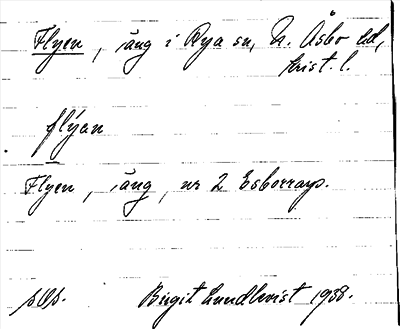 Flyen, äng i Rya sn, N. Åsbo hd,
Krist. l.
flýan
Flyen, äng, nr 2 Esborrarp.
s. Os.
Birgit Lundkvist 1938.